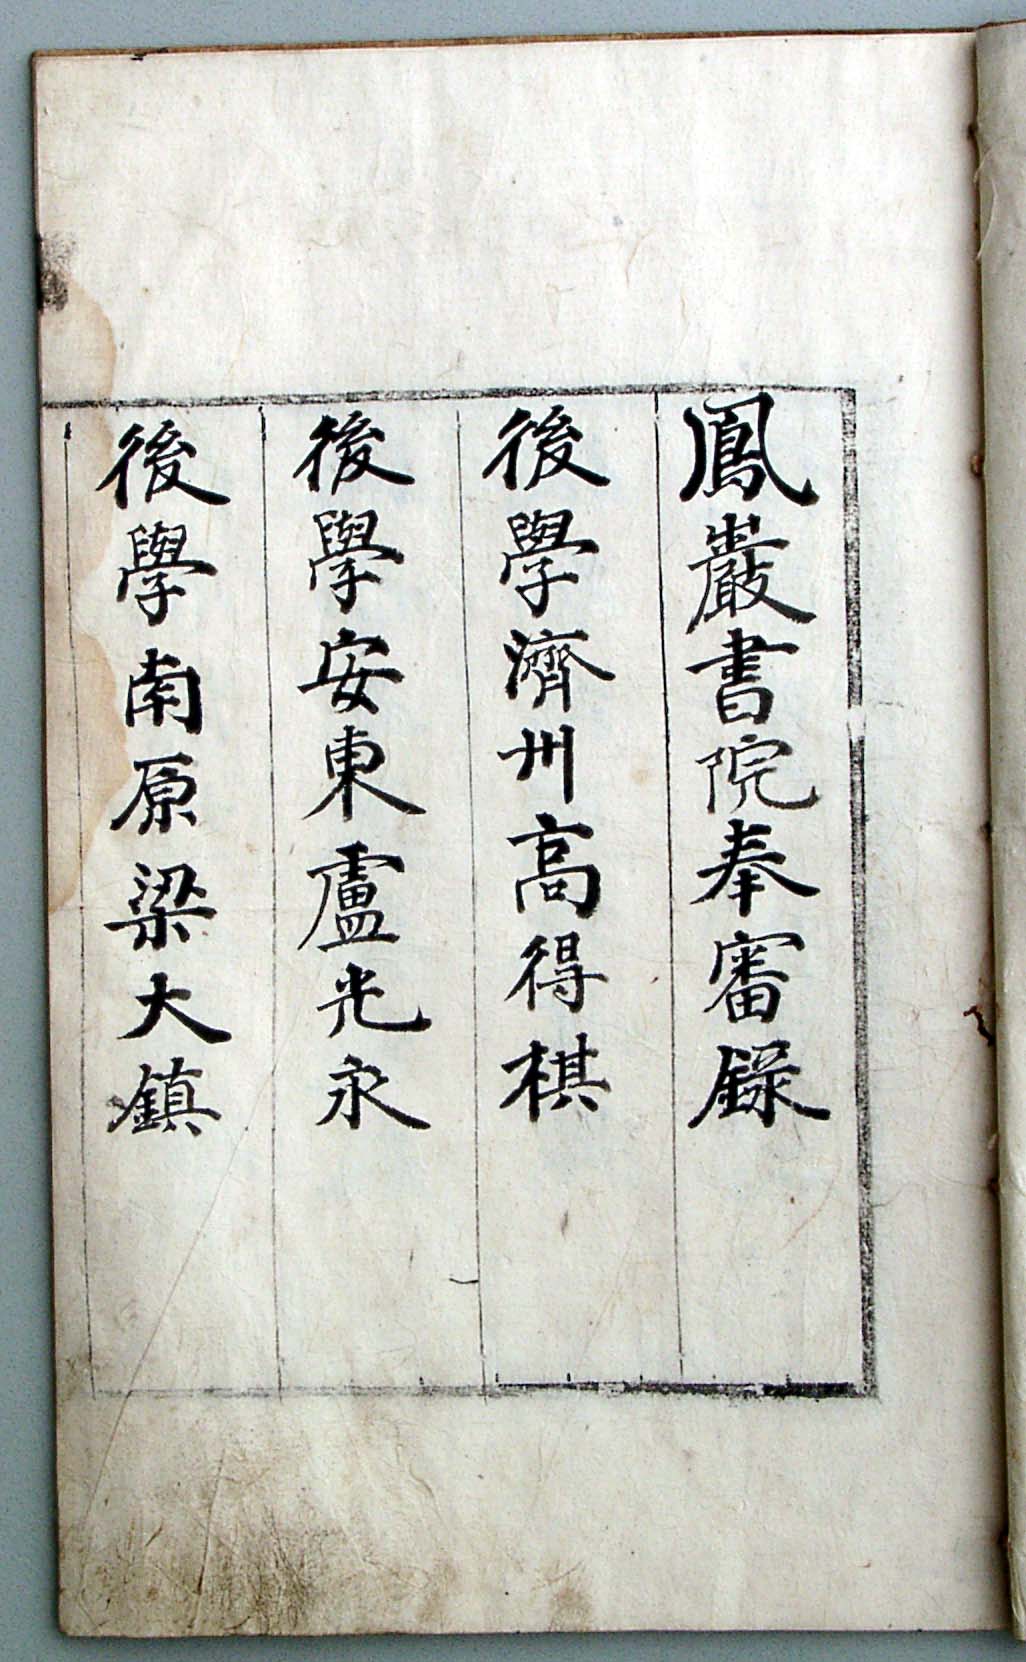 鳳巖書院奉審錄
後學濟州高得棋
後學安東盧光永
後學南原梁大鎮